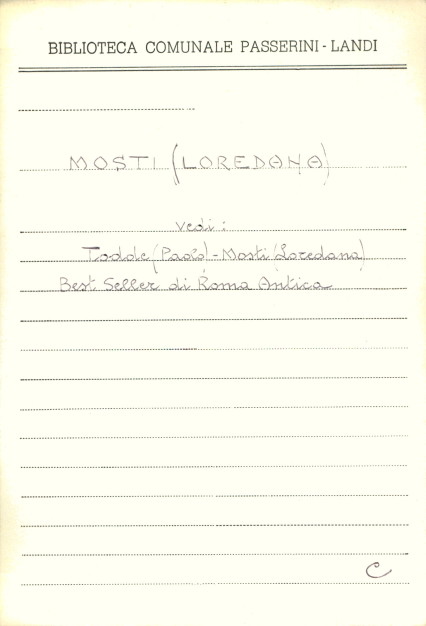 BIBLIOTECA COMUNALE PASSERINI - LANDI
MOSTI (LOREDANA)
vedi :
Todde (Paolo) - Mosti (Loredana)
Best Seller di Roma Antica
C